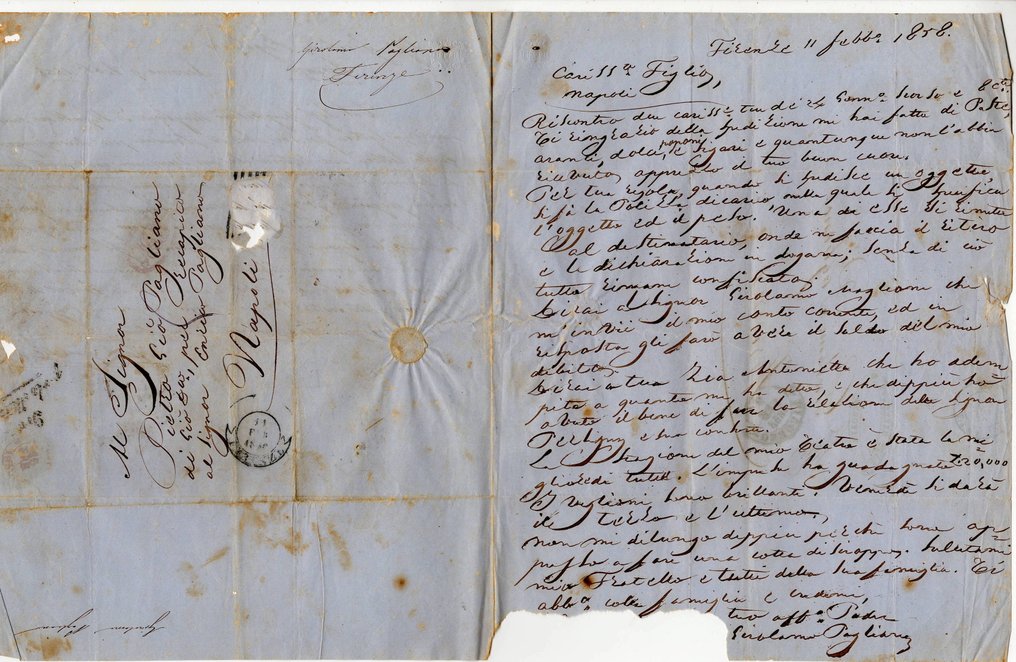 Girolamo Pagliano
Firenze
Al Signor
Pietro Gioo. Pagliano
di Gioo. Bta, per Recapito
al Signor Pagliano
Napoli
Firenze 11 febbo. 1858.
Cariss.o Figlio,
Napoli
Riscontro due cariss.e tue di 24 Genn.o scorso e 8 cte.
Ti ringrazio della spedizione mi hai fatto di Paste,
aranci, dolci, poponi e sigari e quantunque non l'abbia
ricevuto, apprezzo il tuo buon cuore.
Per tua regola, quando si spedisce un oggetto,
si fà la Polizza di carico, nella quale si specifica
l'oggetto ed il peso. Una di esse si rimette
al destinatario, onde ne faccia il ritiro
e le dichiarazioni in dogana; senza di ciò
tutto rimane confiscato.
Dirai al Signor Girolamo Maglione che
m'invii il mio conto corrente, ed in
risposta gli farò avere il saldo del mio
debito.
Dirai a tua Zia Antonietta che ho adem
pito a quanto mi ha detto, e che dippiù hò
avuto il bene di fare la relazione del Signor
e sua consorte.
La Stagione del mio Teatro è stata la mi
gliore di tutte. L'impresa ha guadagnato £20,000
I Veglioni, sono brillanti. Venerdì si darà
il terzo e l'ultimo,
non mi dilungo dippiù perchè sono ap=
presso a fare una cotta di Siroppo. Salutami
mio Fratello e tutti della sua famiglia. Ti
abbo. colla famiglia e credimi,
tuo affo. Padre
Girolamo Pagliano